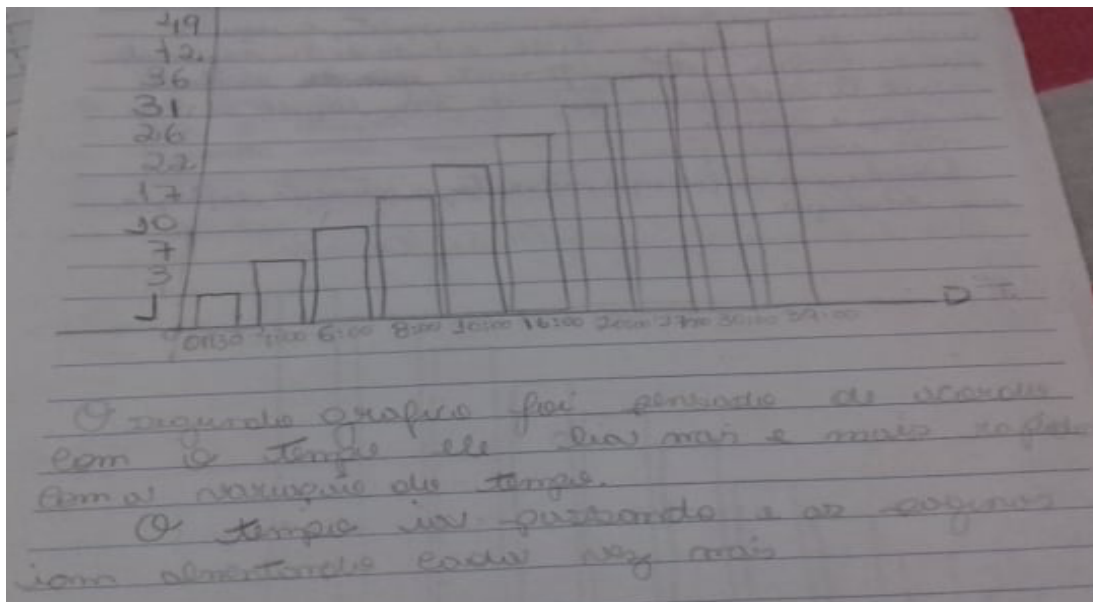 49
42
36
31
26
22
17
10
7
3
1
01:30 6:00 8:00 10:00 16:00 20:00 27:00 30:00 34:00
O segundo grafico foi pensado de acordo
com o tempo ele lia mais e mais rapido
com a variação do tempo.
O tempo ia passando e as paginas
iam almentando cada vez mais